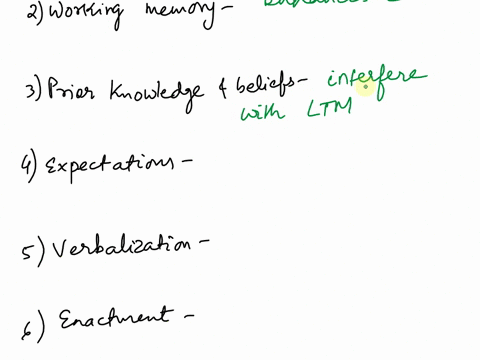 2) Working memory -
3) Prier Knowledge & beliefs - interfere
with LTM
4) Expectations -
5) Verbalization -
6) Enactment -